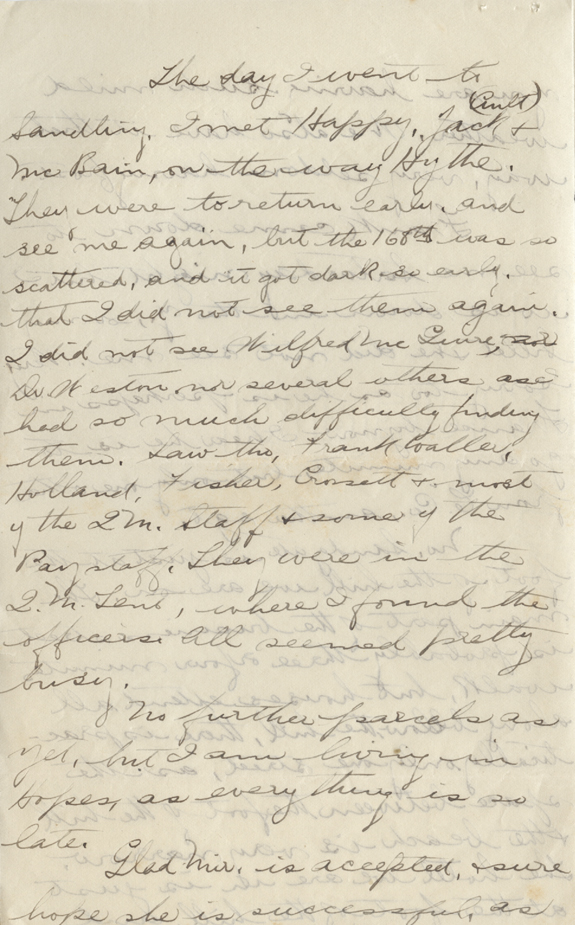 The day I went to
(Ault)
Sandling, I met Happy, Jack &
McBain, on the way Hythe.
They were to return early, and
see me again, but the 168th was so
scattered, and it got dark so early,
that I did not see them again.
I did not see Wilfred McGuire,
Dr. Weston, nor several others as I
had so much difficulty finding
them. Saw tho, Frank Waller,
Holland, Fisher, Crosett & most
of the Q.M. Staff & some of the
Pay staff. They were in the
Q.M. Tent, where I found the
officers. All seemed pretty
busy.
No further parcels as
yet, but I am living in
hopes, as every thing is so
late.
Glad Mir. is accepted, & sure
hope she is successful, as